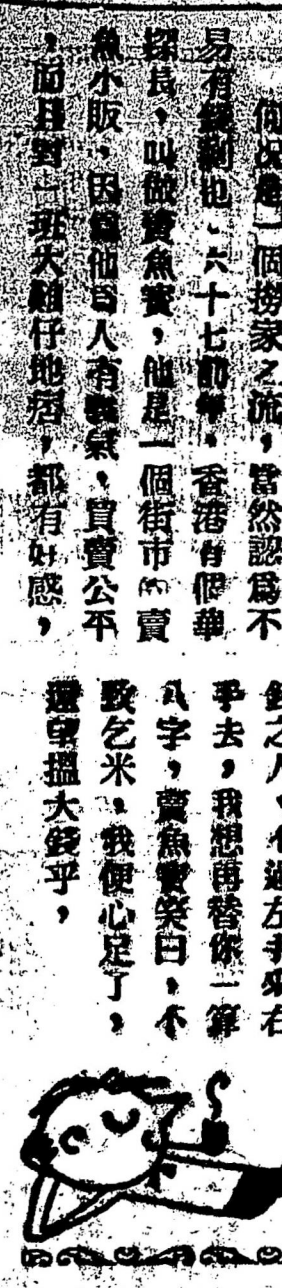 何况是一個撈家之流，當然認爲不
易有錢剩也。六十七前年，香港有個華
探長，叫做賣魚寶，他是一個街市的賣
魚小販，因爲他爲人有義氣，買賣公平
，而且對一班大雞仔地痞，都有好感，
錢之人，不過左手來右
手去，我想再替你一算
八字，賣魚寶笑曰，不
致乞米，我便心足了，
還望搵大錢乎，